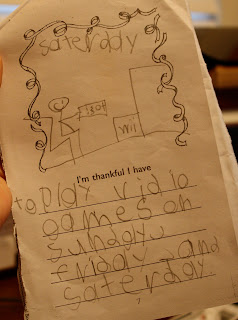 saterday
Wii
I'm thankful I have
to play vidio
games on
sunday,
friday and
saterday.